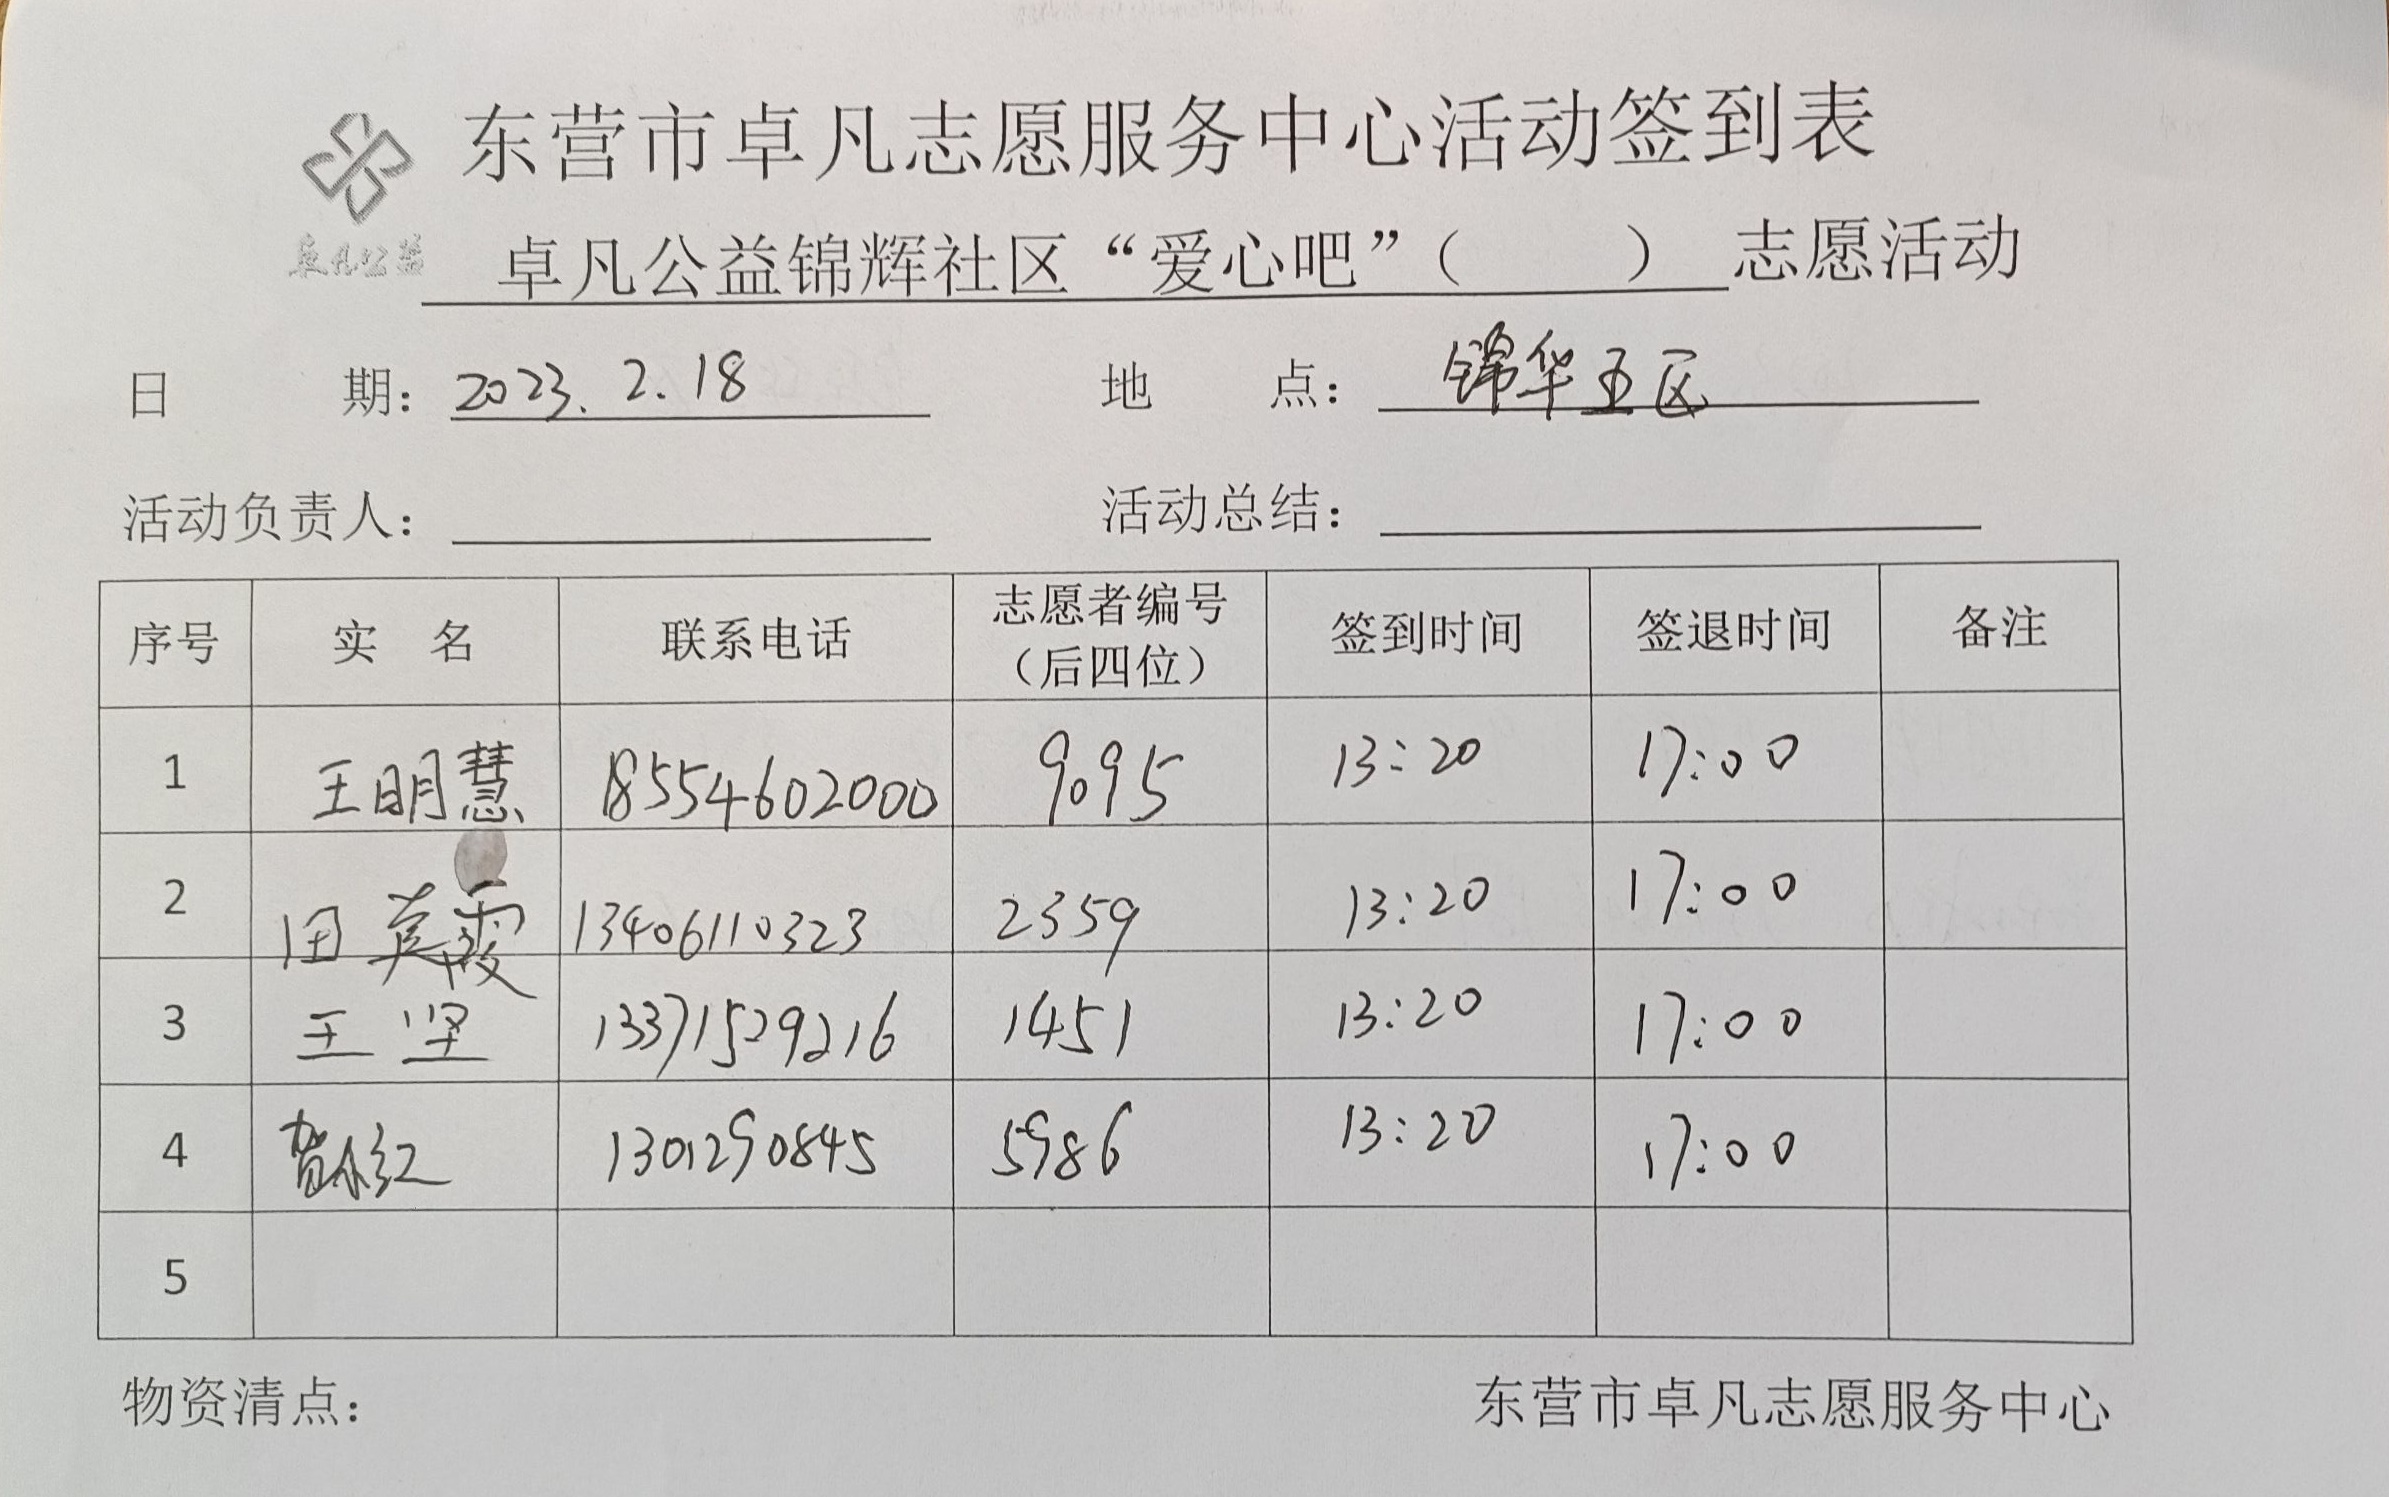 东营市卓凡志愿服务中心活动签到表
卓凡公益
卓凡公益锦辉社区“爱心吧”（ ）志愿活动
日 期：2023.2.18 地 点：锦华五区
活动负责人： 活动总结：
序号 实 名 联系电话 志愿者编号（后四位） 签到时间 签退时间 备注
1 王明慧 18554602000 9095 13:20 17:00
2 田英霞 13406110323 2359 13:20 17:00
3 王坚 13371529216 1451 13:20 17:00
4 贺永红 1301290845 5986 13:20 17:00
5
物资清点： 东营市卓凡志愿服务中心